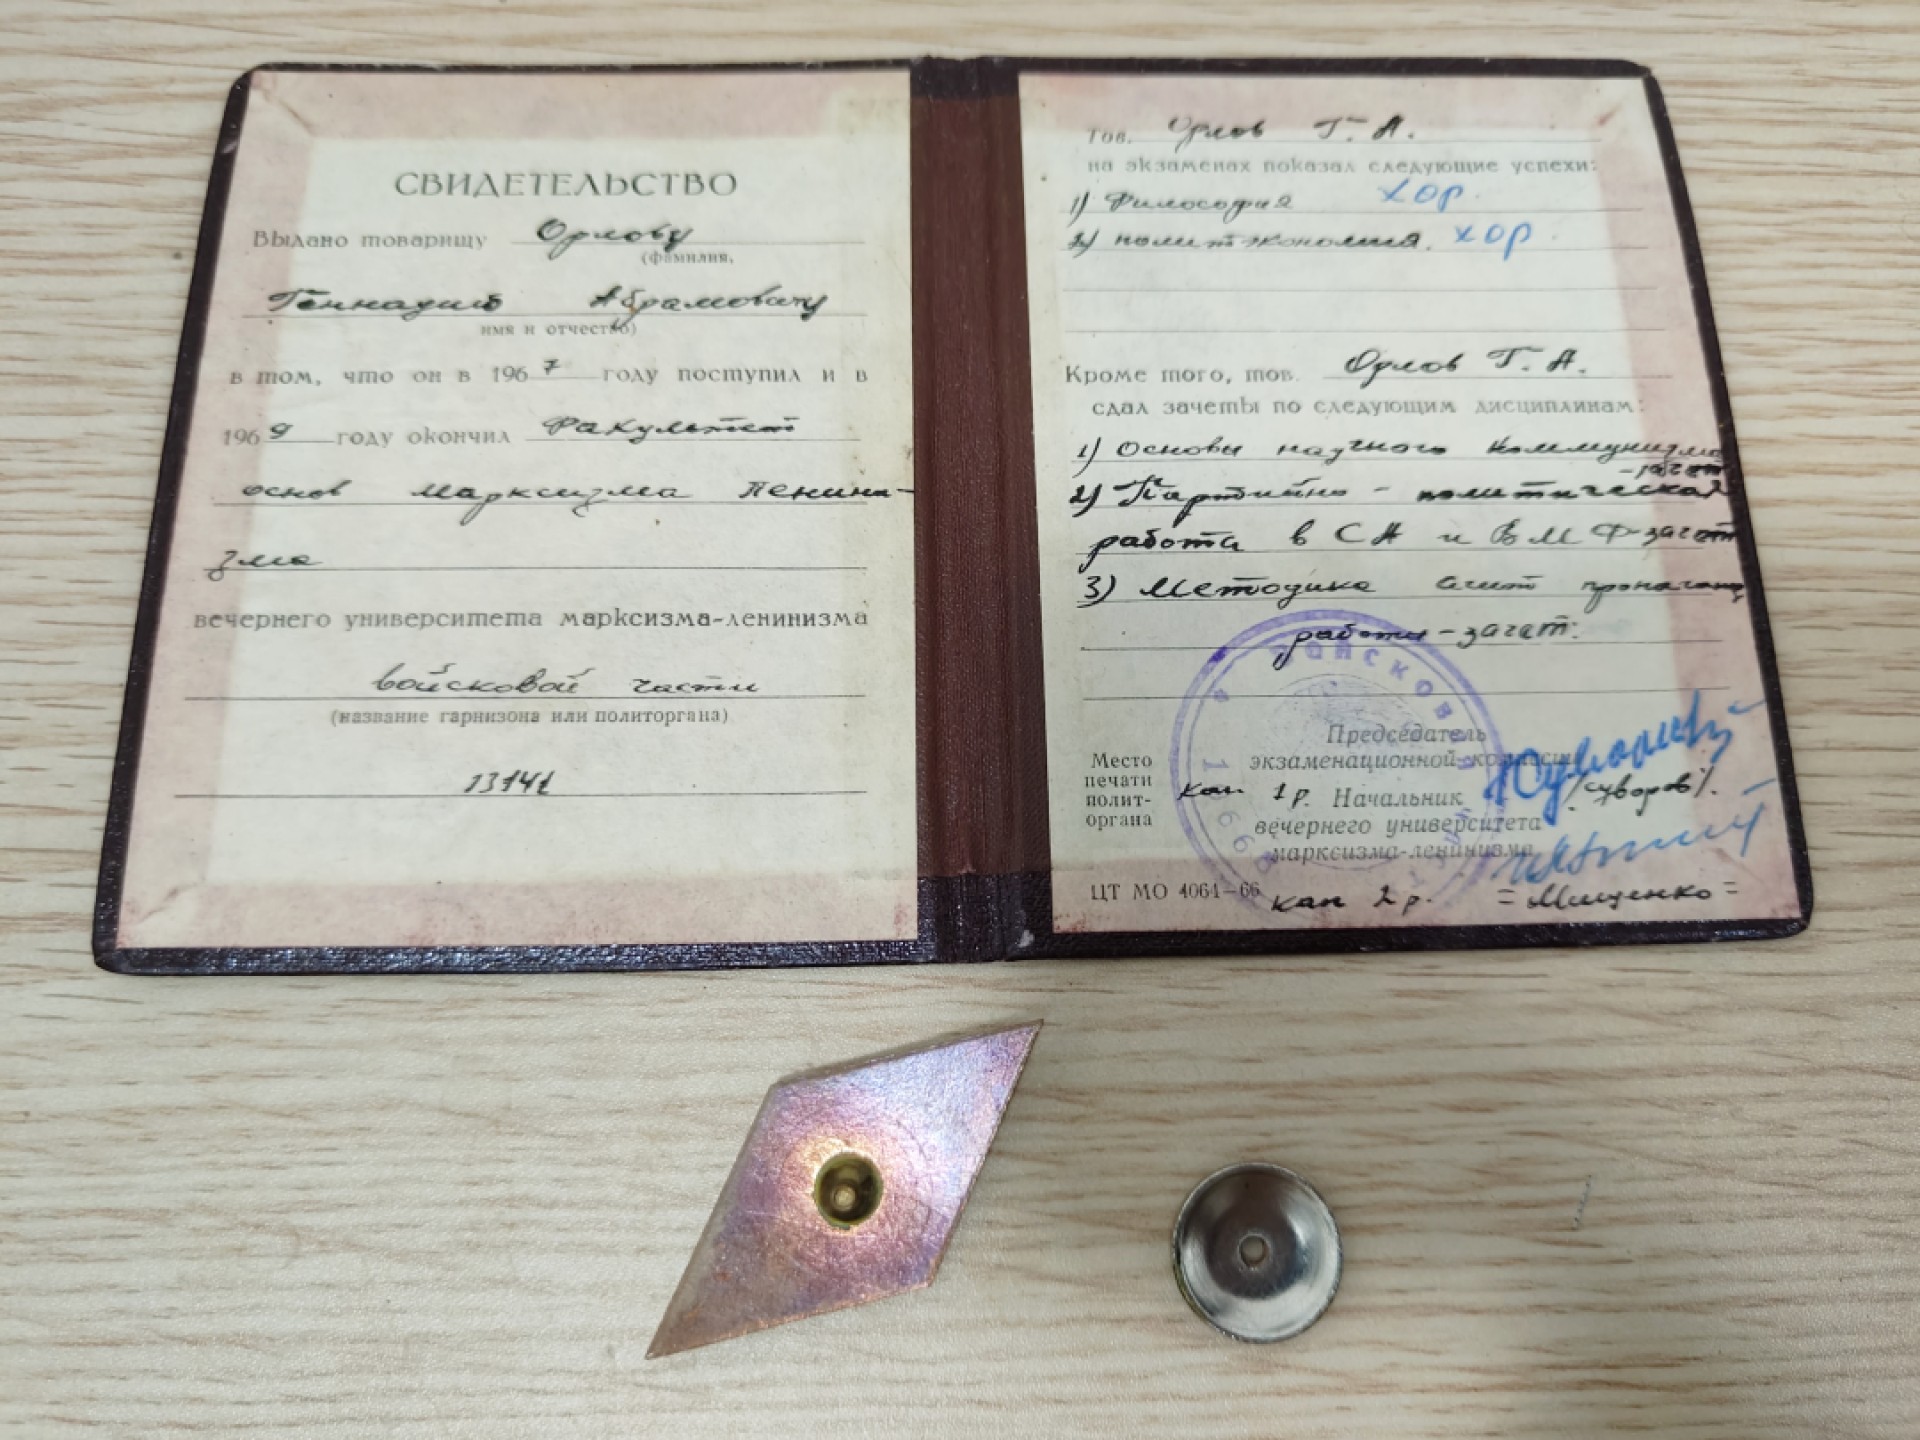 СВИДЕТЕЛЬСТВО
Выдано товарищу Орлову
(фамилия,
Геннадию Абрамовичу
имя и отчество)
в том, что он в 1967 году поступил и в
1969 году окончил факультет
основ марксизма ленини-
зма
вечернего университета марксизма-ленинизма
войсковой части
(название гарнизона или политоргана)
13141
Тов. Орлов Г. А.
на экзаменах показал следующие успехи:
1) Философия хор.
2) политэкономия. хор.
Кроме того, тов. Орлов Г. А.
сдал зачеты по следующим дисциплинам:
1) Основы научного коммунизма
-зачет
2) Партийно - политическая
работа в СА и ВМФ-зачет
3) Методика агит пропаганд
работы - зачет.
ВОЙСКОВАЯ
Место
печати
полит-
органа
Председатель
экзаменационной комиссии
кап. 1 р. /Суворов/.
Начальник
вечернего университета
марксизма-ленинизма
ЦТ МО 4064—66
кап 2 р. = Мищенко =